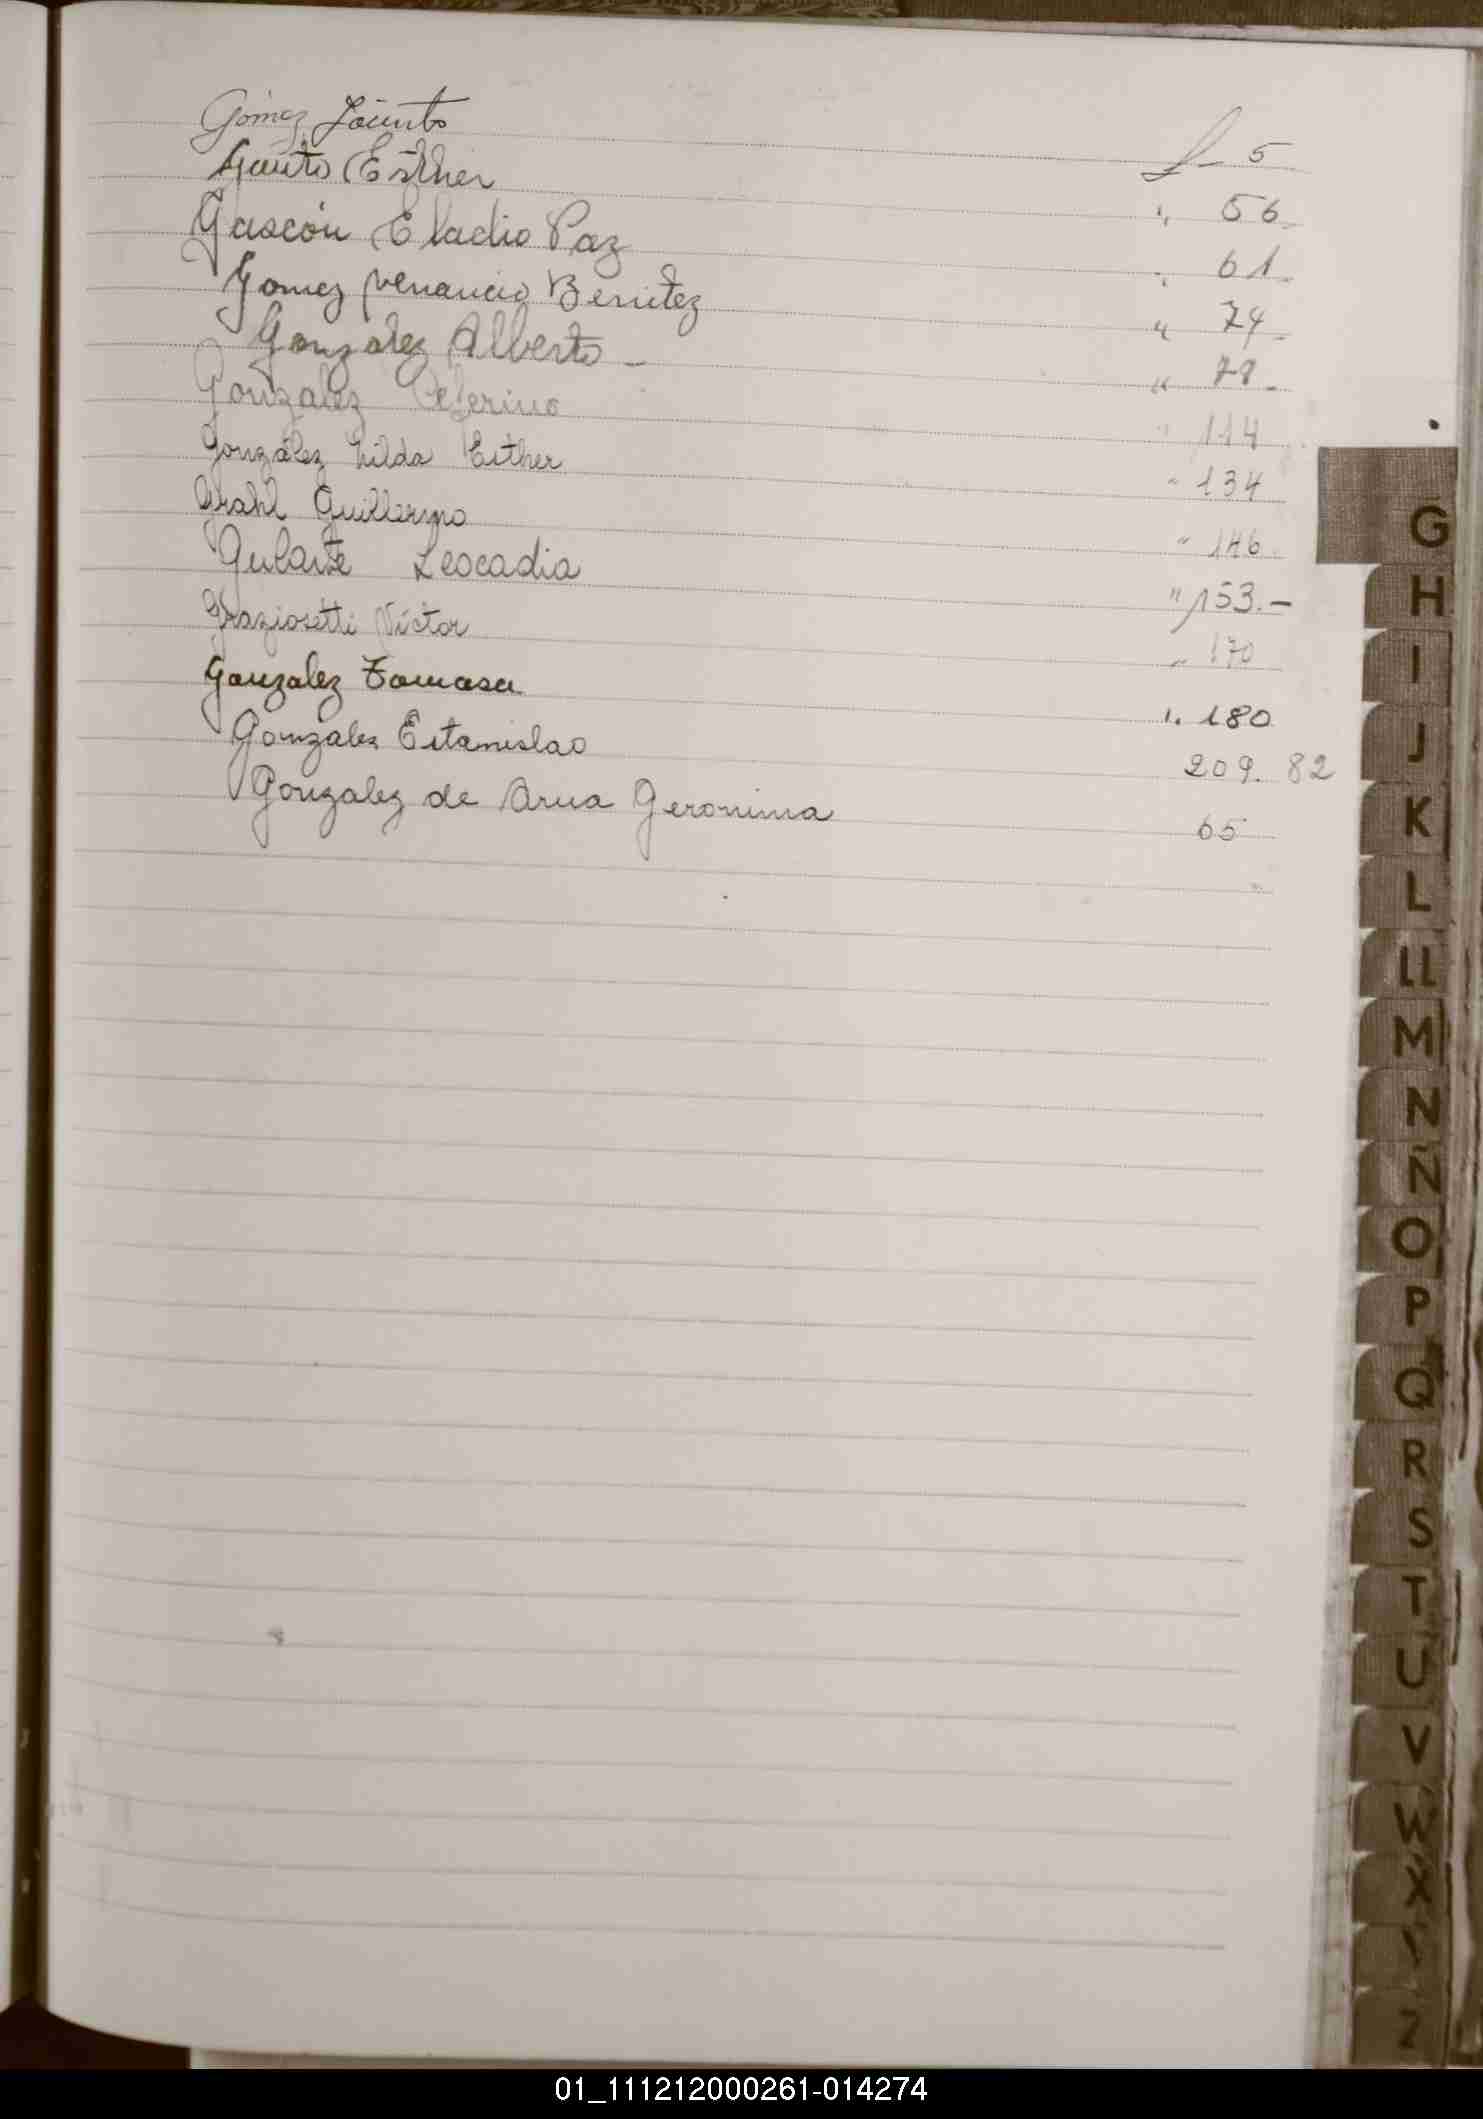 Gómez Jacinto f- 5
Gauto Esther " 56-
Gascón Eladio Paz " 61-
Gomez Venancio Benitez " 74-
Gonzalez Alberto - " 78-
Gonzalez Ceferino " 114
González hilda Esther " 134
Grahl Guillermo " 146
Gularte Leocadia " 153.-
Graziosetti Víctor " 170
Gonzalez Tomasa " 180
Gonzales Estanislao 209. 82
Gonzalez de Arua Geronima 65
G
H
I
J
K
L
LL
M
N
Ñ
O
P
Q
R
S
T
U
V
W
X
Y
Z
01_111212000261-014274